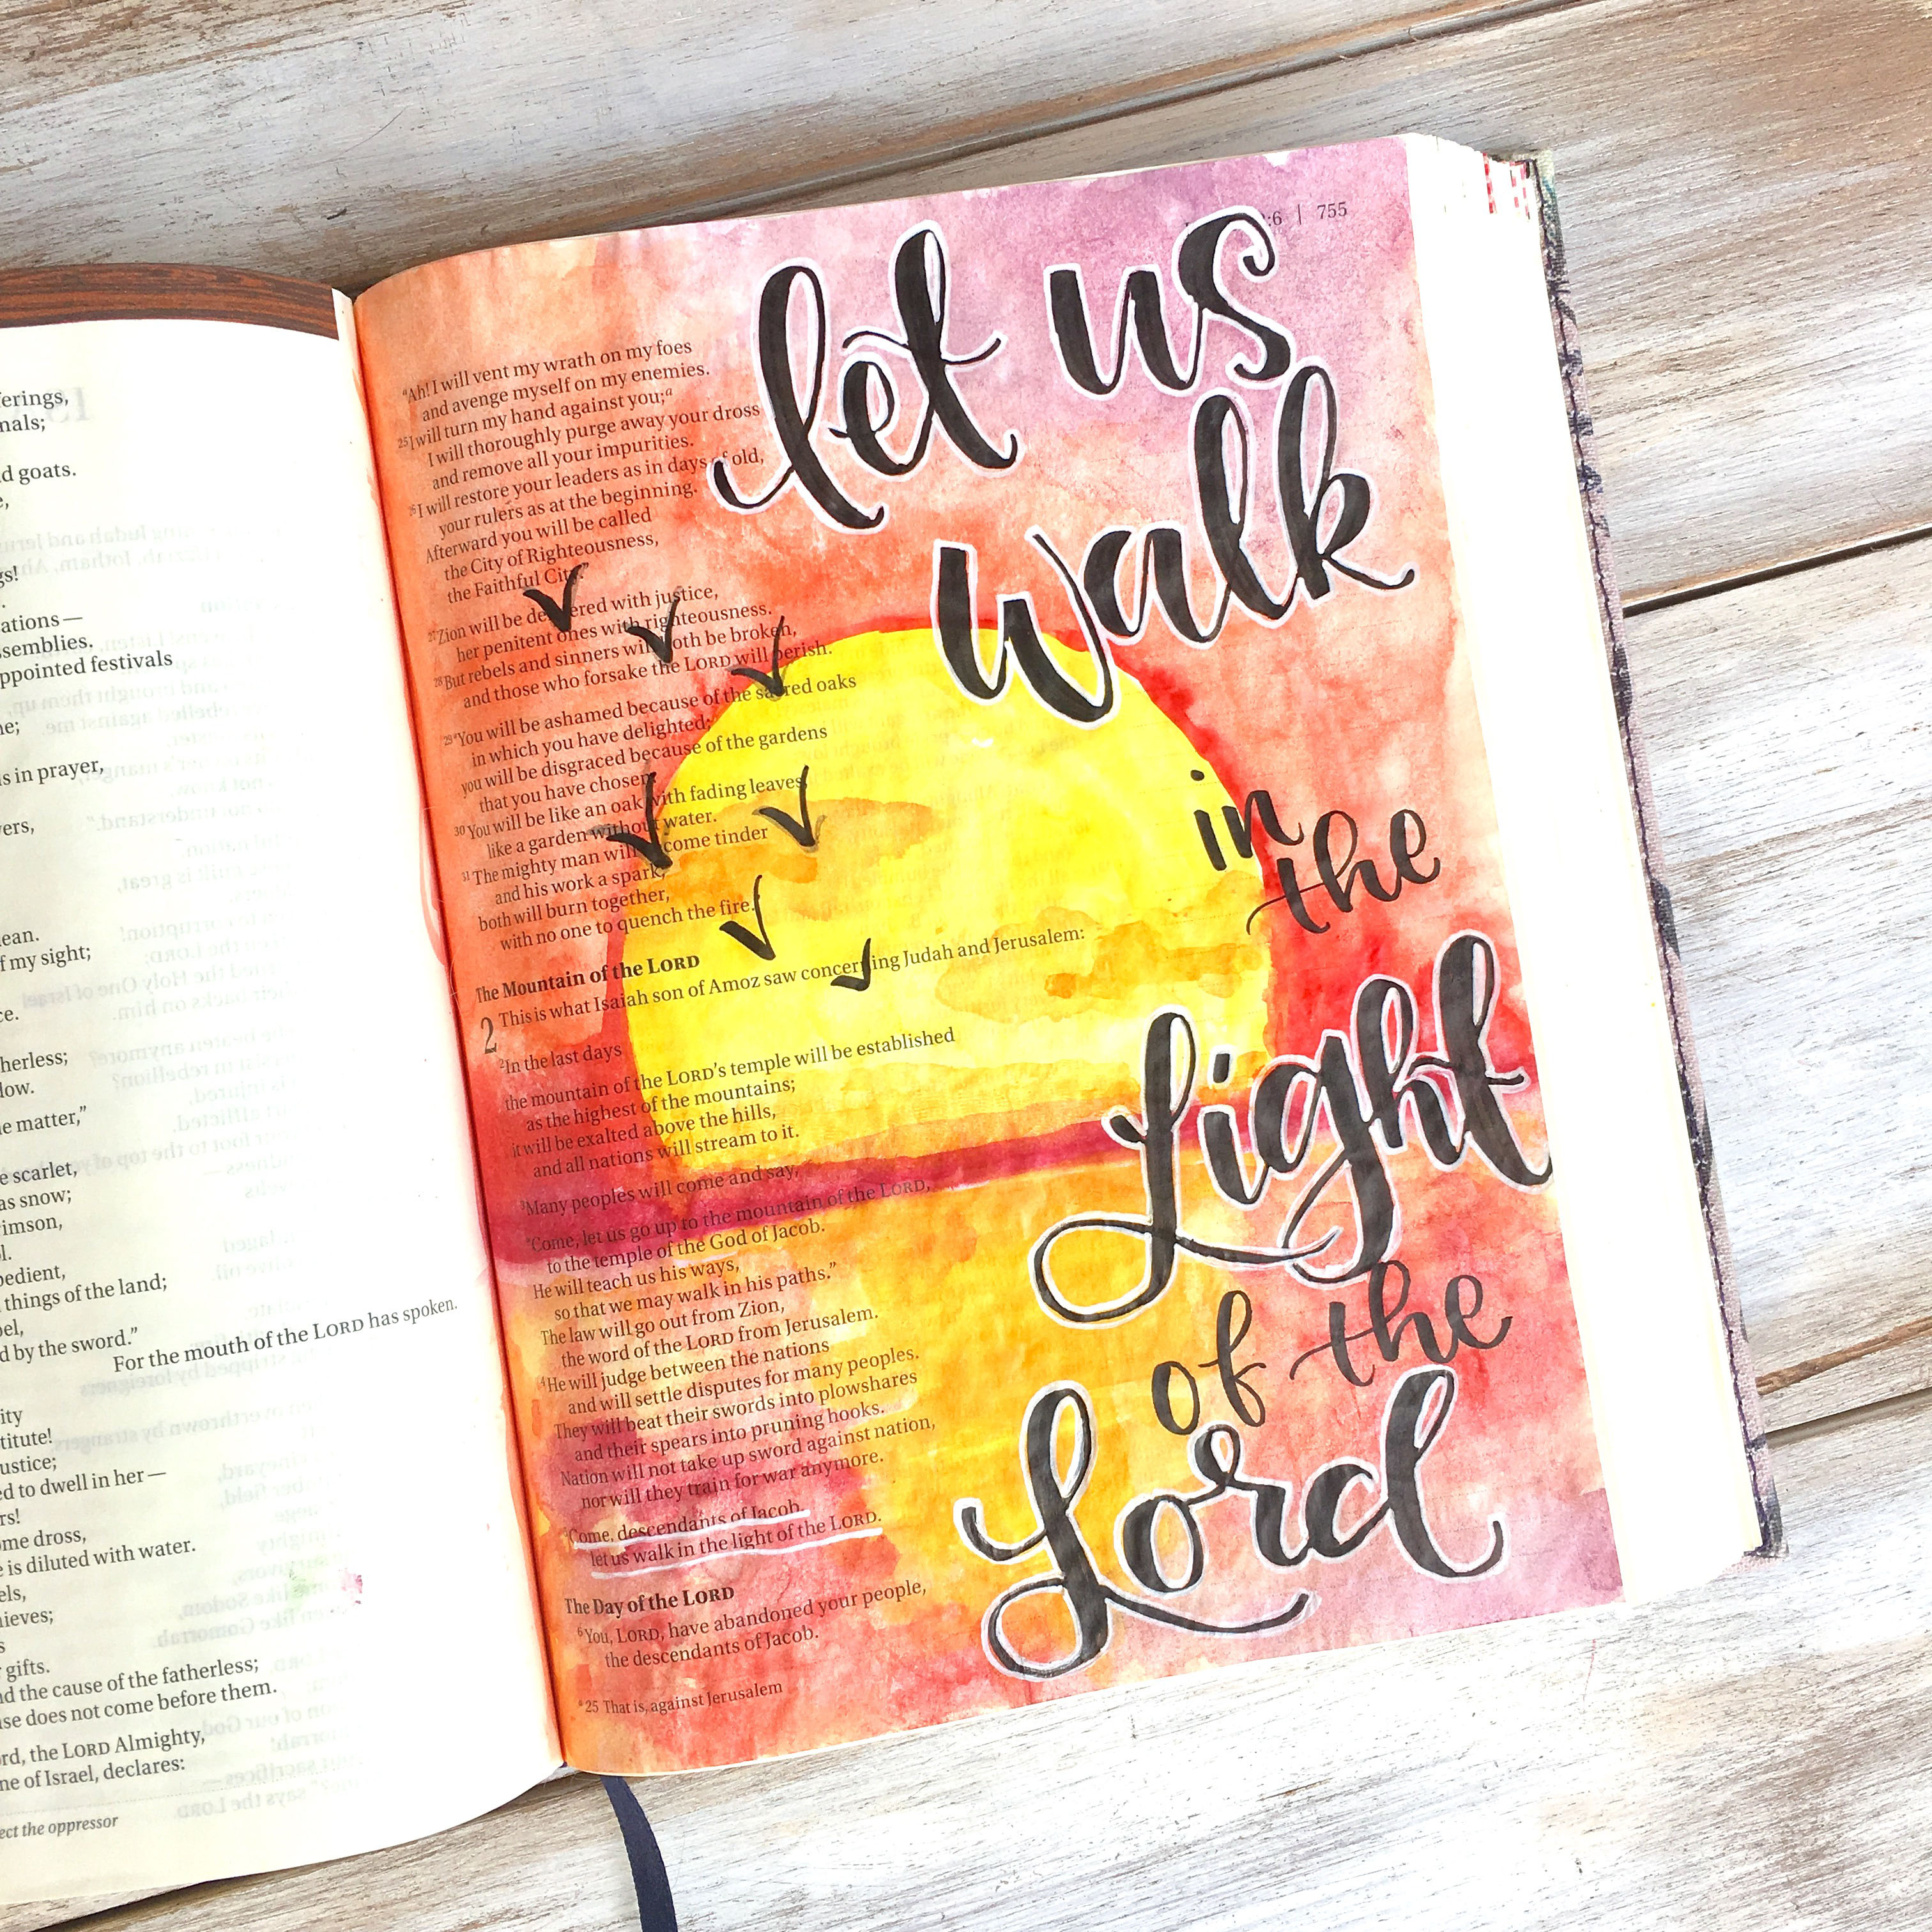 erings,
nals;
d goats.
gs!
ations —
semblies.
ppointed festivals
ne;
s in prayer,
ers,
ean.
f my sight;
ce.
herless;
low.
e matter,"
e scarlet,
as snow;
imson,
l.
bedient,
things of the land;
bel,
d by the sword."
For the mouth of the LORD has spoken.
ity
titute!
ustice;
ed to dwell in her —
rs!
me dross,
e is diluted with water.
els,
hieves;
s
gifts.
d the cause of the fatherless;
se does not come before them.
rd, the LORD Almighty,
ne of Israel, declares:
ect the oppressor
:6 | 755
"Ah! I will vent my wrath on my foes
and avenge myself on my enemies.
25 I will turn my hand against you;a
I will thoroughly purge away your dross
and remove all your impurities.
26 I will restore your leaders as in days of old,
your rulers as at the beginning.
Afterward you will be called
the City of Righteousness,
the Faithful City."
27 Zion will be delivered with justice,
her penitent ones with righteousness.
28 But rebels and sinners will both be broken,
and those who forsake the LORD will perish.
29 "You will be ashamed because of the sacred oaks
in which you have delighted;
you will be disgraced because of the gardens
that you have chosen.
30 You will be like an oak with fading leaves,
like a garden without water.
31 The mighty man will become tinder
and his work a spark;
both will burn together,
with no one to quench the fire."
The Mountain of the LORD
2 This is what Isaiah son of Amoz saw concerning Judah and Jerusalem:
2 In the last days
the mountain of the LORD's temple will be established
as the highest of the mountains;
it will be exalted above the hills,
and all nations will stream to it.
3 Many peoples will come and say,
"Come, let us go up to the mountain of the LORD,
to the temple of the God of Jacob.
He will teach us his ways,
so that we may walk in his paths."
The law will go out from Zion,
the word of the LORD from Jerusalem.
4 He will judge between the nations
and will settle disputes for many peoples.
They will beat their swords into plowshares
and their spears into pruning hooks.
Nation will not take up sword against nation,
nor will they train for war anymore.
5 Come, descendants of Jacob,
let us walk in the light of the LORD.
The Day of the LORD
6 You, LORD, have abandoned your people,
the descendants of Jacob.
a 25 That is, against Jerusalem
let us
walk
in
the
Light
of the
Lord